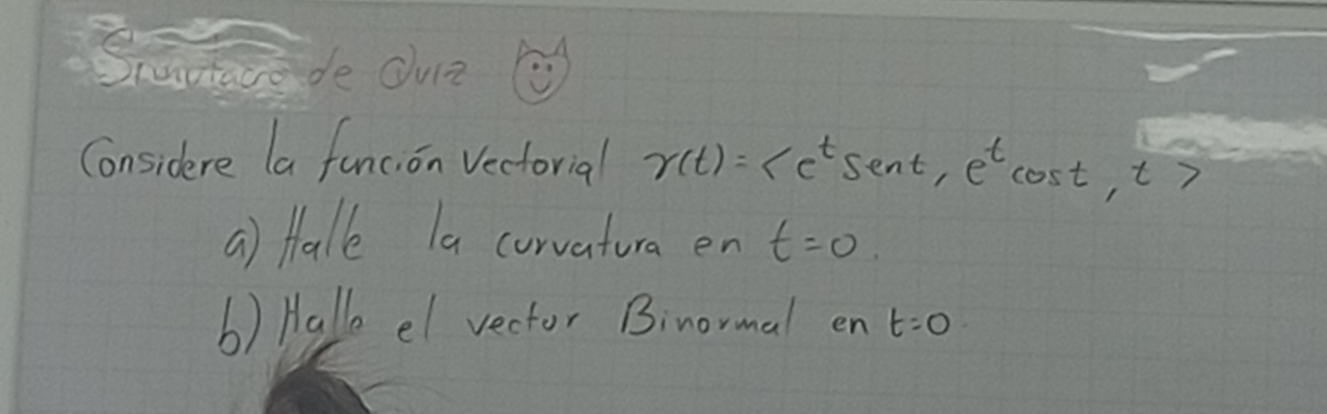 de Quiz
Considere la función vectorial r(t) = < e^t sent, e^t cost, t >
a) Halle la curvatura en t=0.
b) Halle el vector Binormal en t=0.